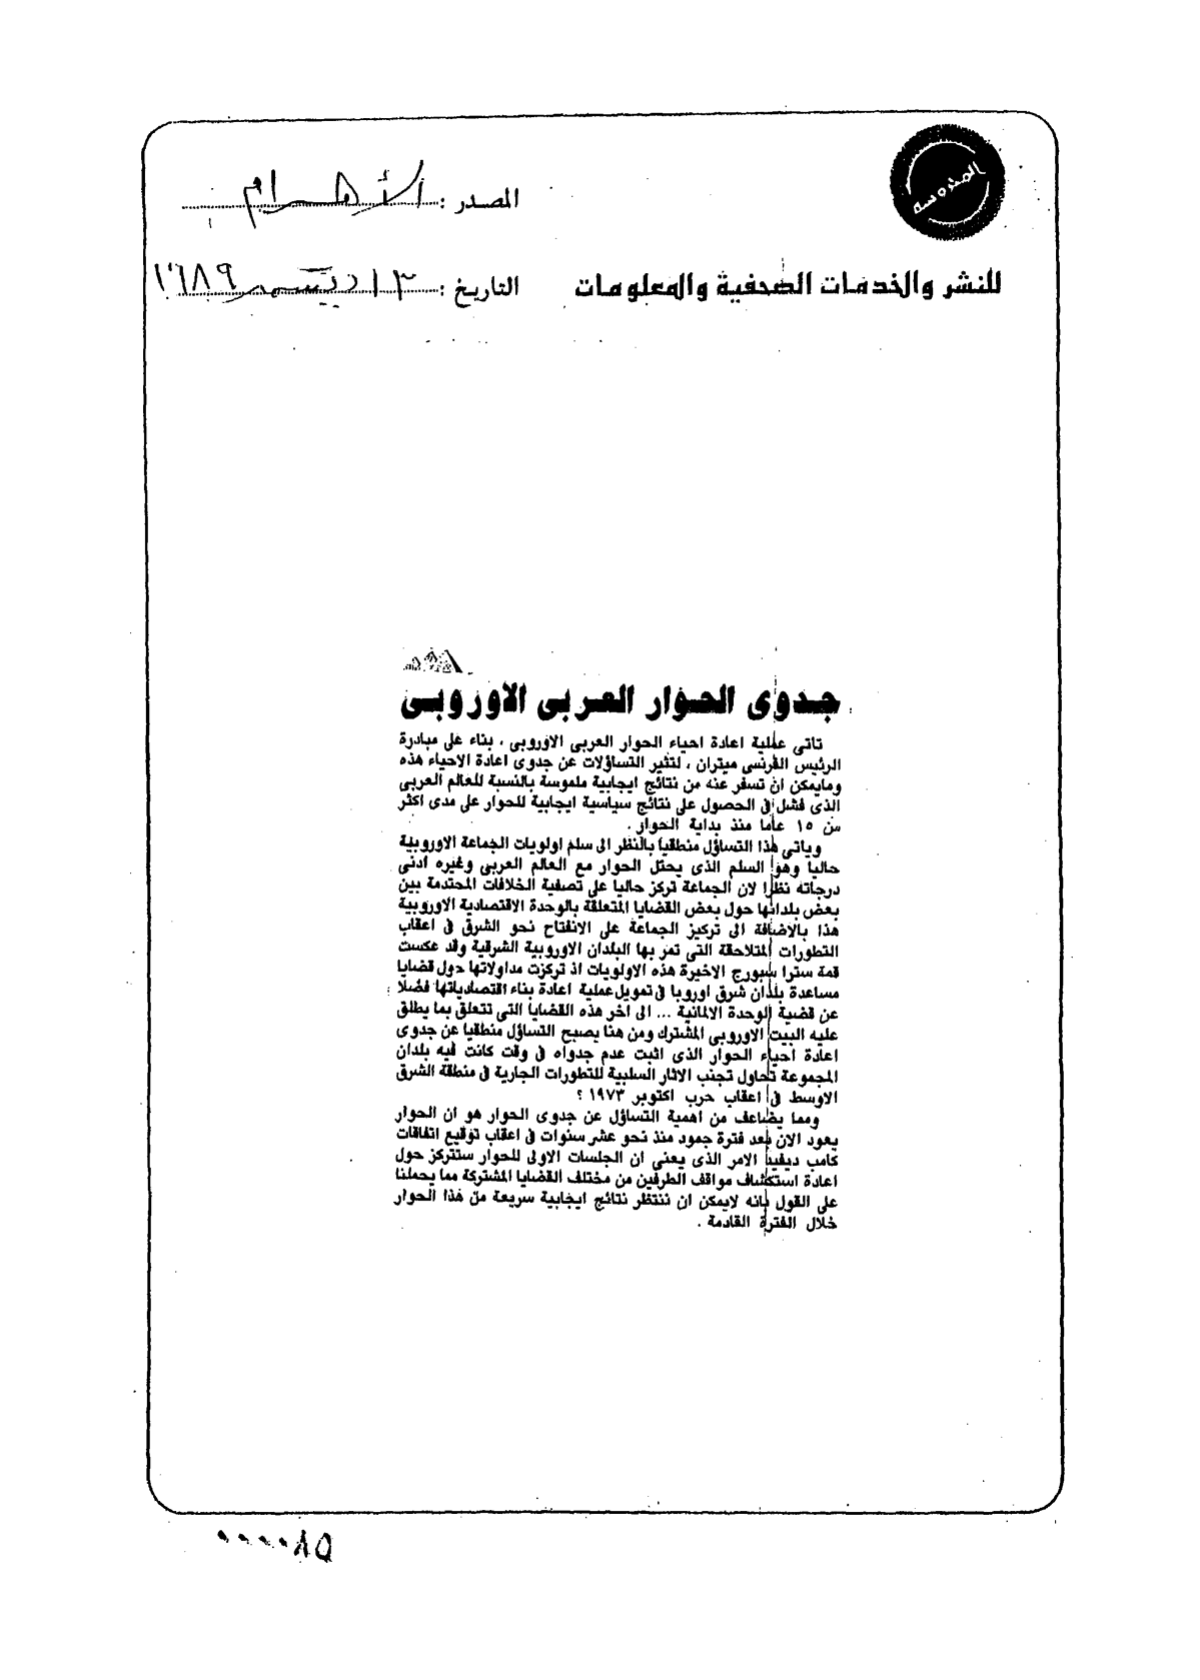 المصدر : الأهرام
للنشر والخدمات الصحفية والمعلومات
التاريخ : ١٣ ديسمبر ١٩٨٩
جدوى الحوار العربى الاوروبى
تاتى عملية اعادة احياء الحوار العربى الاوروبى ، بناء على مبادرة
الرئيس الفرنسى ميتران ، لتثير التساؤلات عن جدوى اعادة الاحياء هذه
ومايمكن ان تسفر عنه من نتائج ايجابية ملموسة بالنسبة للعالم العربى
الذى فشل فى الحصول على نتائج سياسية ايجابية للحوار على مدى اكثر
من ١٥ عاما منذ بداية الحوار .
وياتى هذا التساؤل منطقيا بالنظر الى سلم اولويات الجماعة الاوروبية
حاليا وهو السلم الذى يحتل الحوار مع العالم العربى وغيره ادنى
درجاته نظرا لان الجماعة تركز حاليا على تصفية الخلافات المحتدمة بين
بعض بلدانها حول بعض القضايا المتعلقة بالوحدة الاقتصادية الاوروبية
هذا بالاضافة الى تركيز الجماعة على الانفتاح نحو الشرق فى اعقاب
التطورات المتلاحقة التى تمر بها البلدان الاوروبية الشرقية وقد عكست
قمة ستراسبورج الاخيرة هذه الاولويات اذ تركزت مداولاتها حول قضايا
مساعدة بلدان شرق اوروبا فى تمويل عملية اعادة بناء اقتصادياتها فضلا
عن قضية الوحدة الالمانية ... الى اخر هذه القضايا التى تتعلق بما يطلق
عليه البيت الاوروبى المشترك ومن هنا يصبح التساؤل منطقيا عن جدوى
اعادة احياء الحوار الذى اثبت عدم جدواه فى وقت كانت فيه بلدان
المجموعة تحاول تجنب الاثار السلبية للتطورات الجارية فى منطقة الشرق
الاوسط فى اعقاب حرب اكتوبر ١٩٧٣ ؟
ومما يضاعف من اهمية التساؤل عن جدوى الحوار هو ان الحوار
يعود الان بعد فترة جمود منذ نحو عشر سنوات فى اعقاب توقيع اتفاقات
كامب ديفيد الامر الذى يعنى ان الجلسات الاولى للحوار ستتركز حول
اعادة استكشاف مواقف الطرفين من مختلف القضايا المشتركة مما يحملنا
على القول بانه لايمكن ان ننتظر نتائج ايجابية سريعة من هذا الحوار
خلال الفترة القادمة .